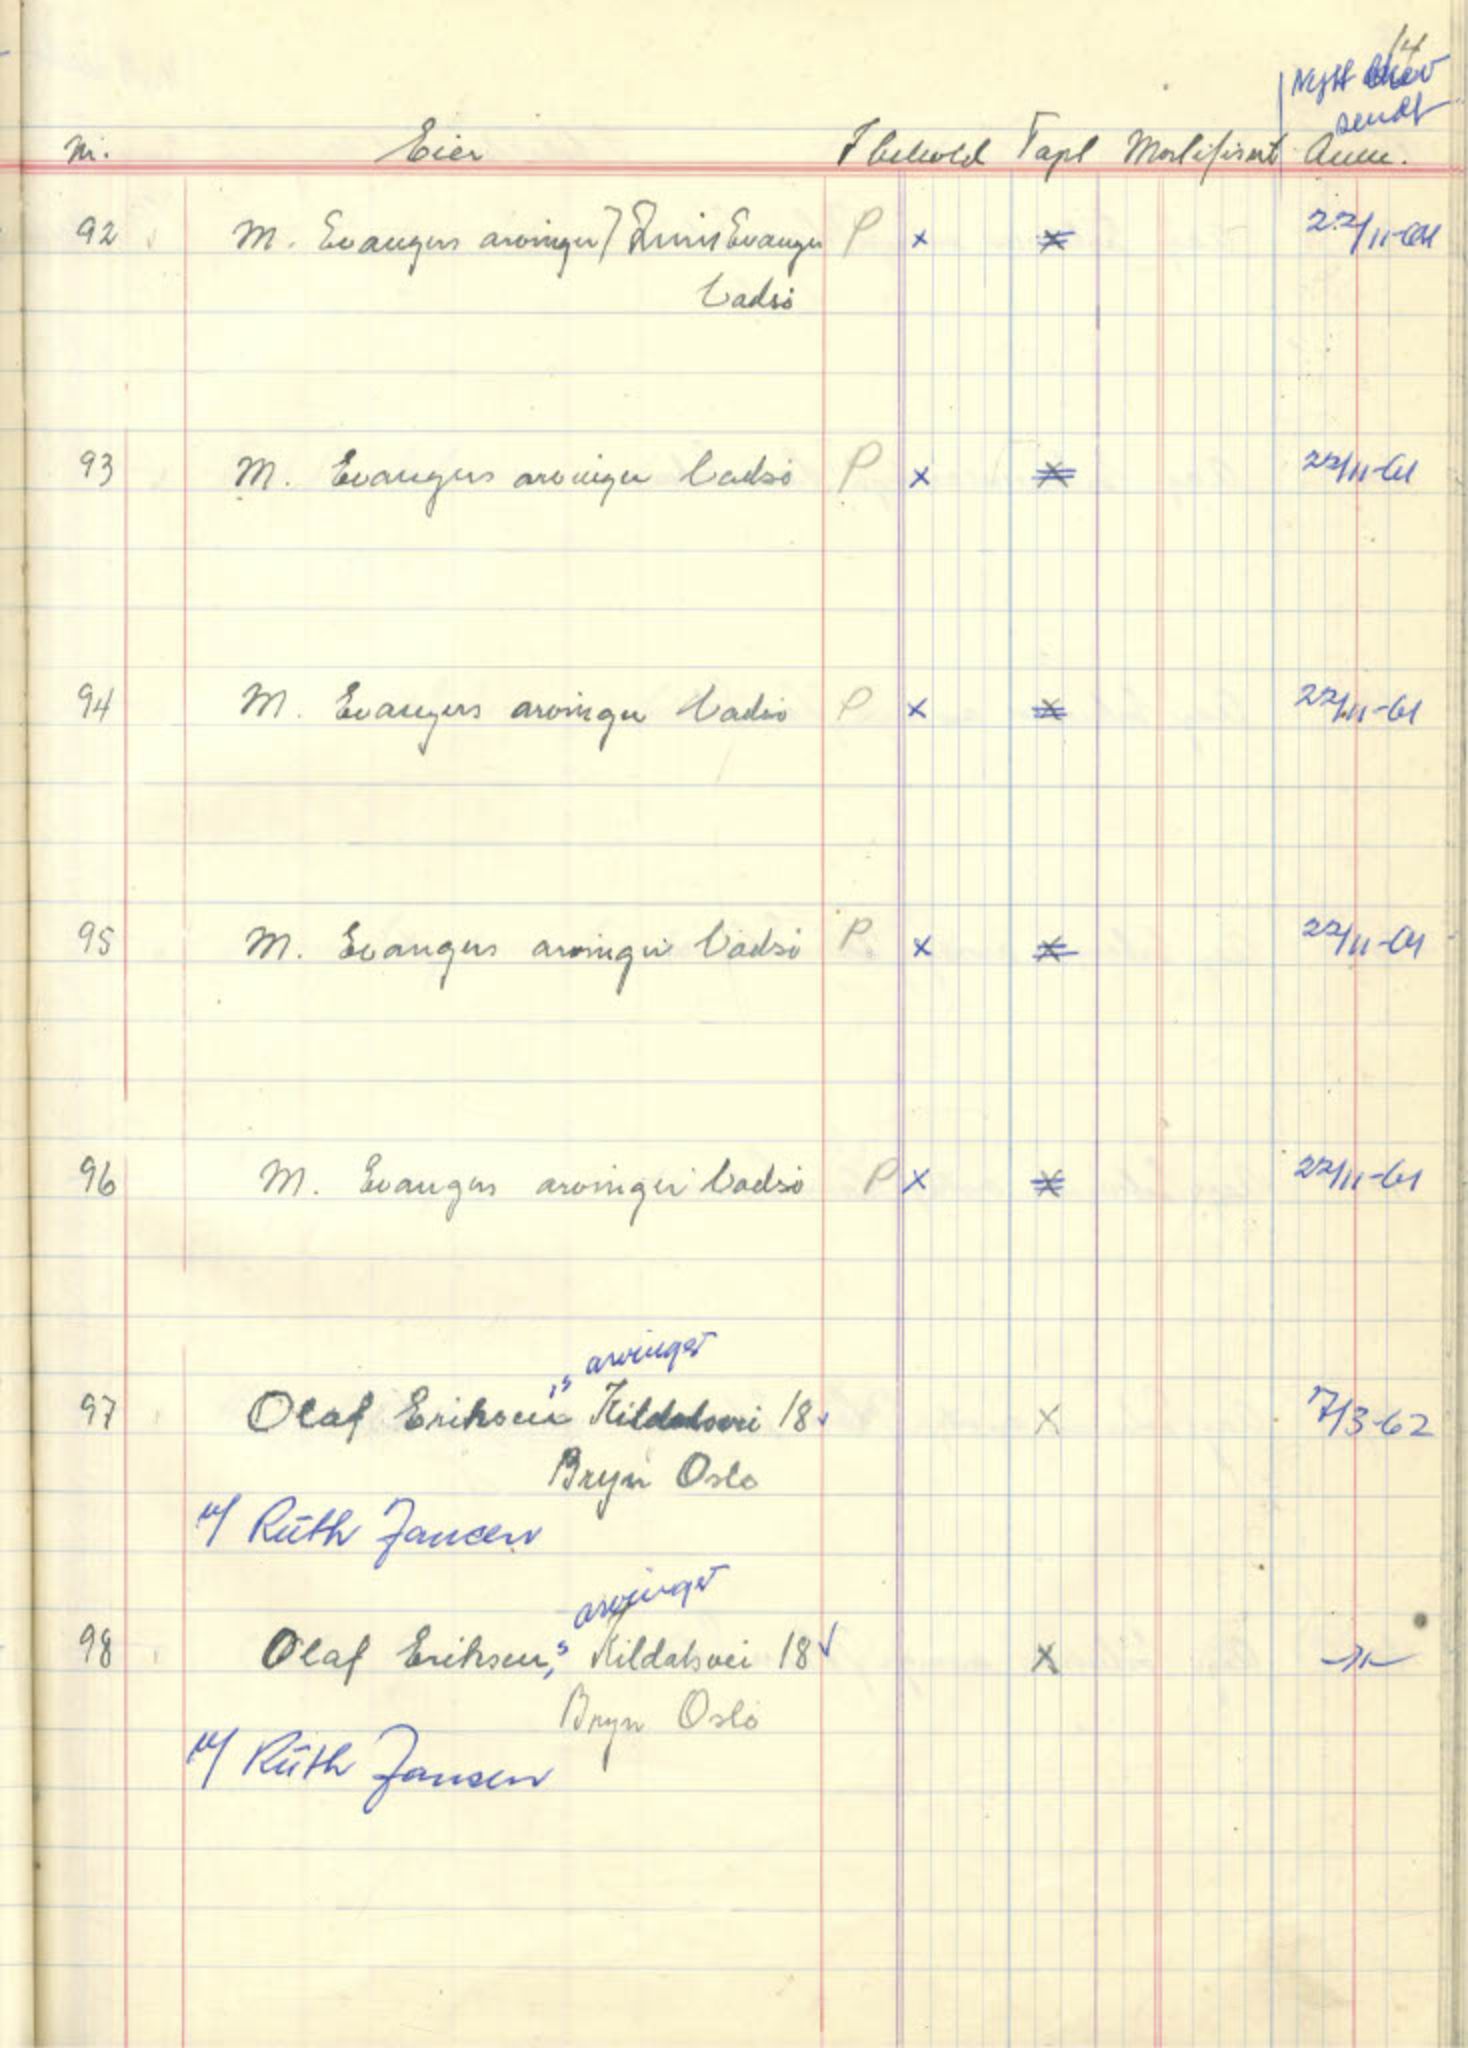 14
Nytt brev
sendt
Nr. Eier I behold Tapt Mortifisert Anm.
92 M. Evangers arvinger / Evanger P x x 22/11-61
Vadsö
93 M. Evangers arvinger Vadsö P x x 22/11-61
94 M. Evangers arvinger Vadsö P x x 22/11-61
95 M. Evangers arvinger Vadsö P. x x 22/11-61
96 M. Evangers arvinger Vadsö P x x 22/11-61
arvinger
97 Olaf Eriksen,s Kildalsvei 18 x 7/3-62
Bryn Oslo
v/ Ruth Jansen
arvinger
98 Olaf Eriksen,s Kildalsvei 18 x -"-
Bryn Oslo
v/ Ruth Jansen